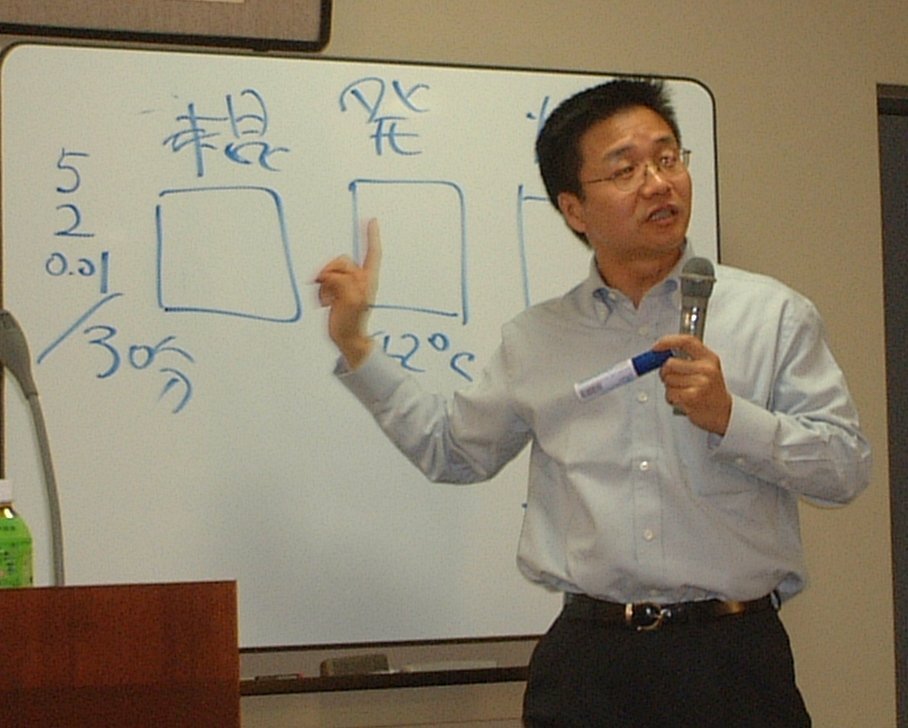 発
5
2
0.01
/30分
12°C